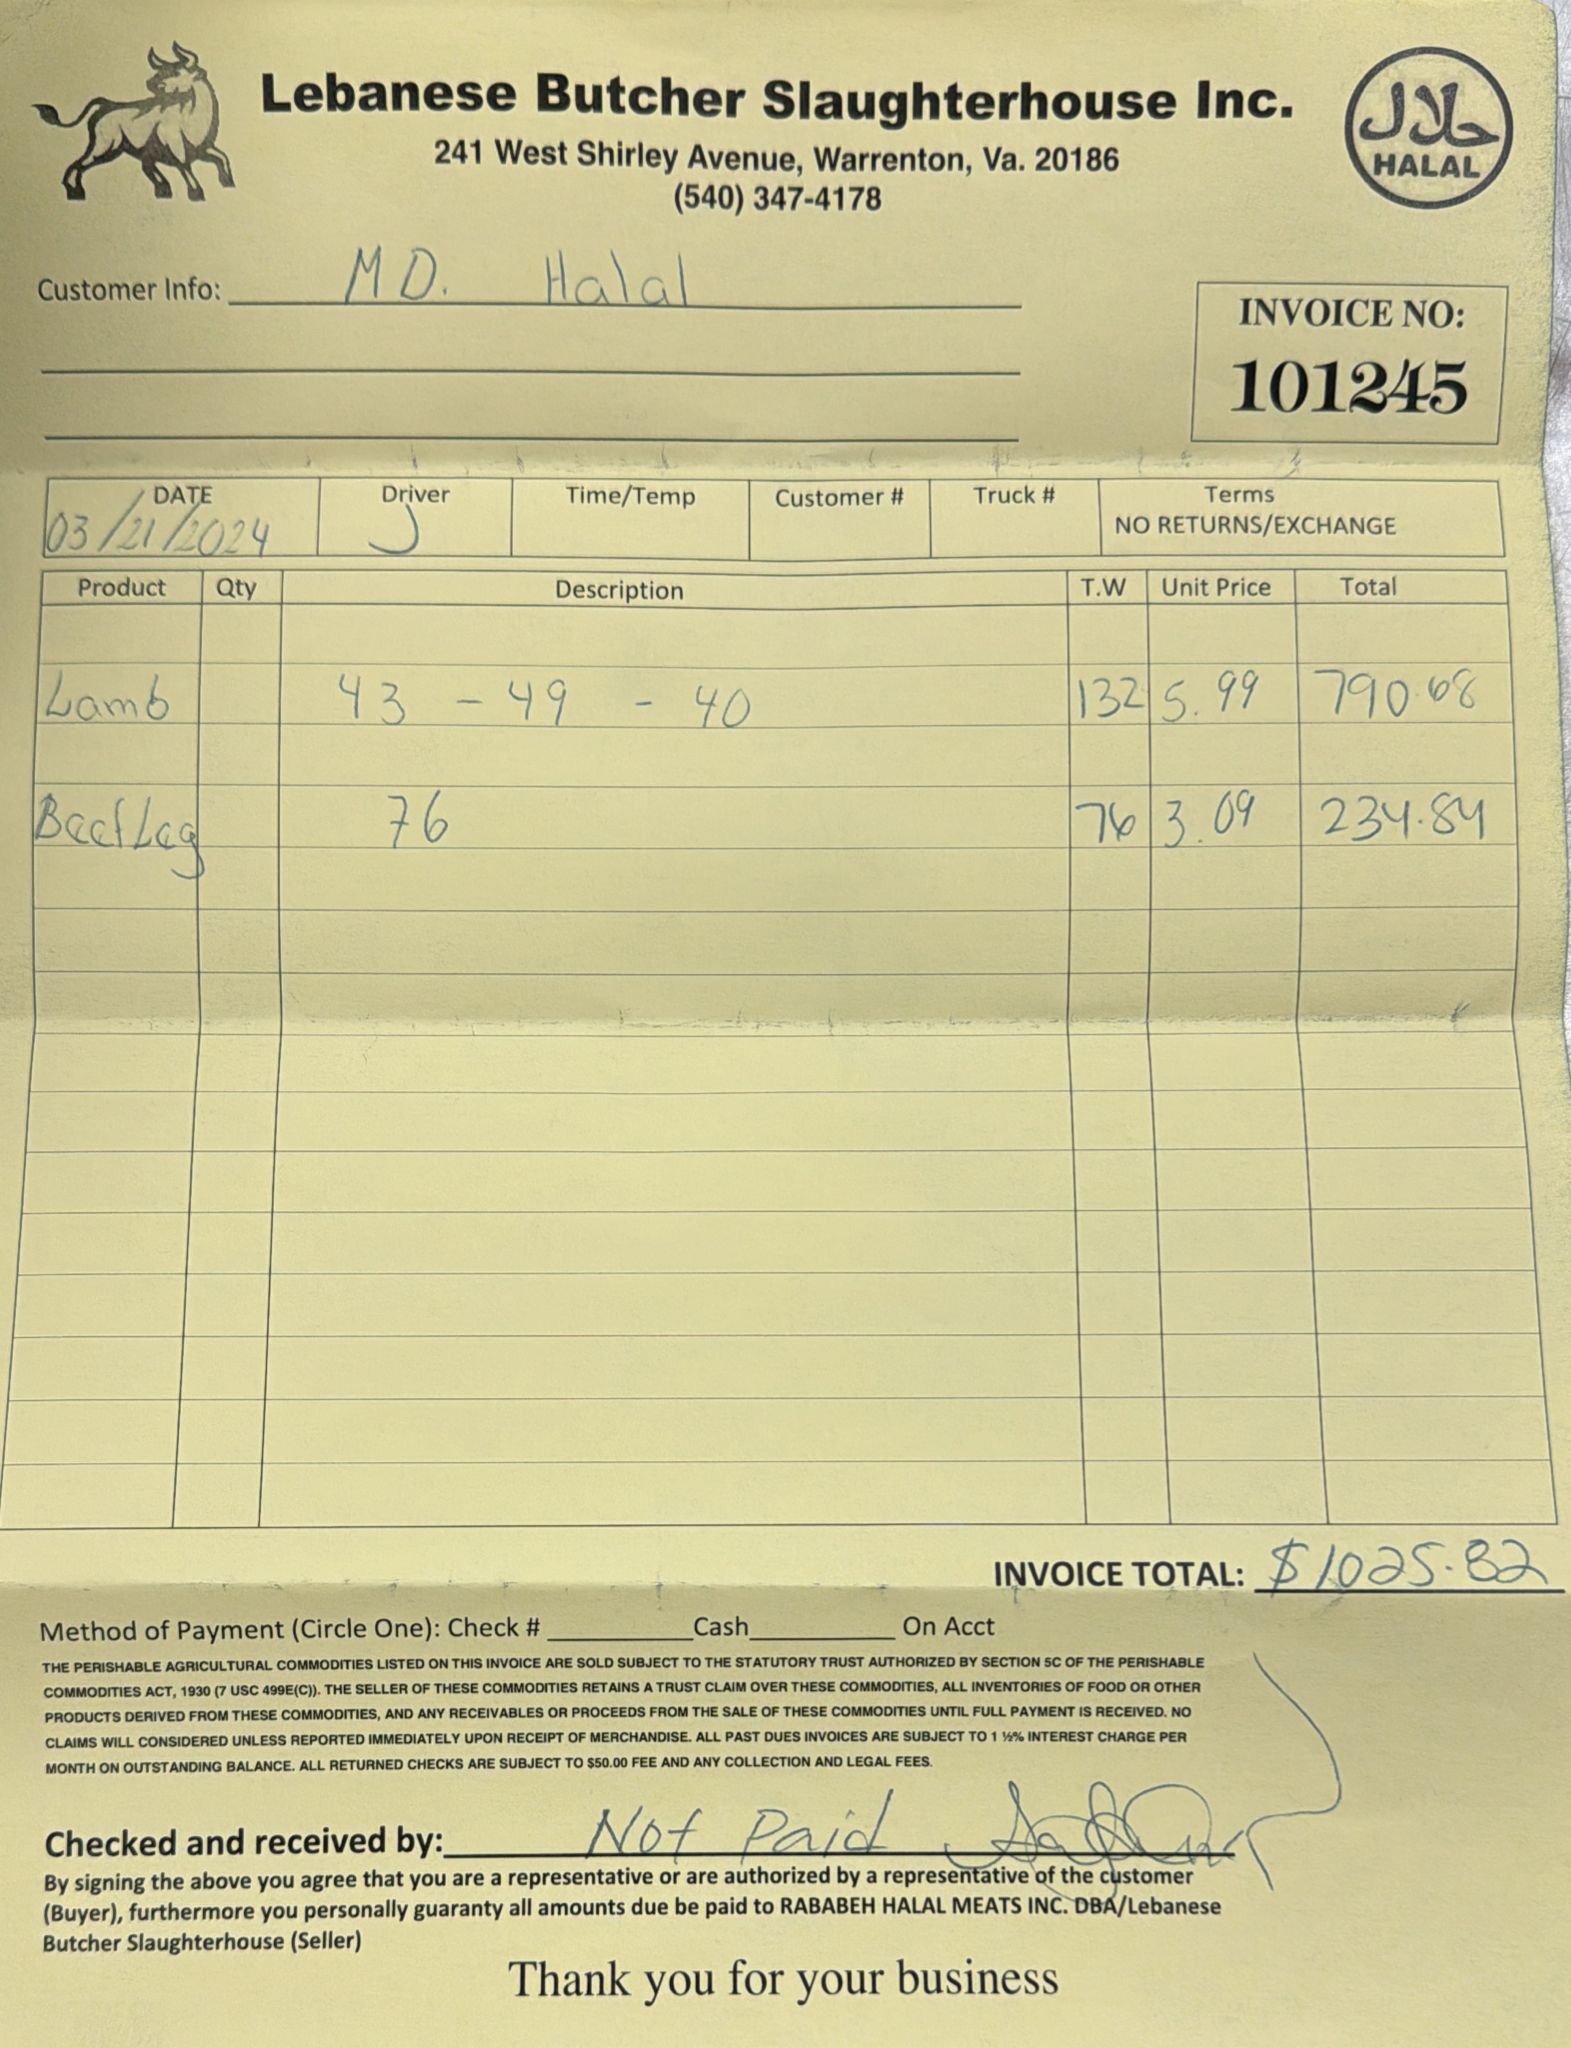 Lebanese Butcher Slaughterhouse Inc.
241 West Shirley Avenue, Warrenton, Va. 20186
(540) 347-4178
حلال
HALAL
Customer Info: MD. Halal
INVOICE NO:
101245
DATE Driver Time/Temp Customer # Truck # Terms
03/21/2024 J NO RETURNS/EXCHANGE
Product Qty Description T.W Unit Price Total
Lamb 43 - 49 - 40 132 5.99 790.68
Beef Leg 76 76 3.09 234.84
INVOICE TOTAL: $1025.82
Method of Payment (Circle One): Check # Cash On Acct
THE PERISHABLE AGRICULTURAL COMMODITIES LISTED ON THIS INVOICE ARE SOLD SUBJECT TO THE STATUTORY TRUST AUTHORIZED BY SECTION 5C OF THE PERISHABLE
COMMODITIES ACT, 1930 (7 USC 499E(C)). THE SELLER OF THESE COMMODITIES RETAINS A TRUST CLAIM OVER THESE COMMODITIES, ALL INVENTORIES OF FOOD OR OTHER
PRODUCTS DERIVED FROM THESE COMMODITIES, AND ANY RECEIVABLES OR PROCEEDS FROM THE SALE OF THESE COMMODITIES UNTIL FULL PAYMENT IS RECEIVED. NO
CLAIMS WILL CONSIDERED UNLESS REPORTED IMMEDIATELY UPON RECEIPT OF MERCHANDISE. ALL PAST DUES INVOICES ARE SUBJECT TO 1 ½% INTEREST CHARGE PER
MONTH ON OUTSTANDING BALANCE. ALL RETURNED CHECKS ARE SUBJECT TO $50.00 FEE AND ANY COLLECTION AND LEGAL FEES.
Checked and received by: Not Paid
By signing the above you agree that you are a representative or are authorized by a representative of the customer
(Buyer), furthermore you personally guaranty all amounts due be paid to RABABEH HALAL MEATS INC. DBA/Lebanese
Butcher Slaughterhouse (Seller)
Thank you for your business